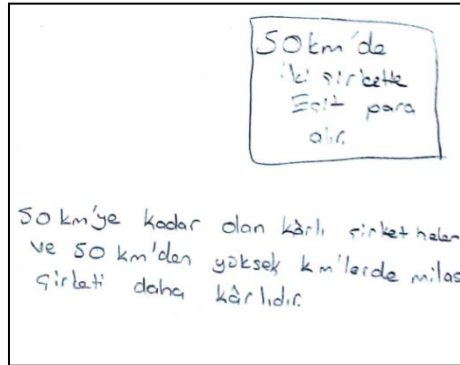 50km'de
iki şirkette
Eşit para
alır.
50 km'ye kadar olan kârlı şirket
ve 50 km'den yüksek km'lerde milas
şirketi daha kârlıdır.